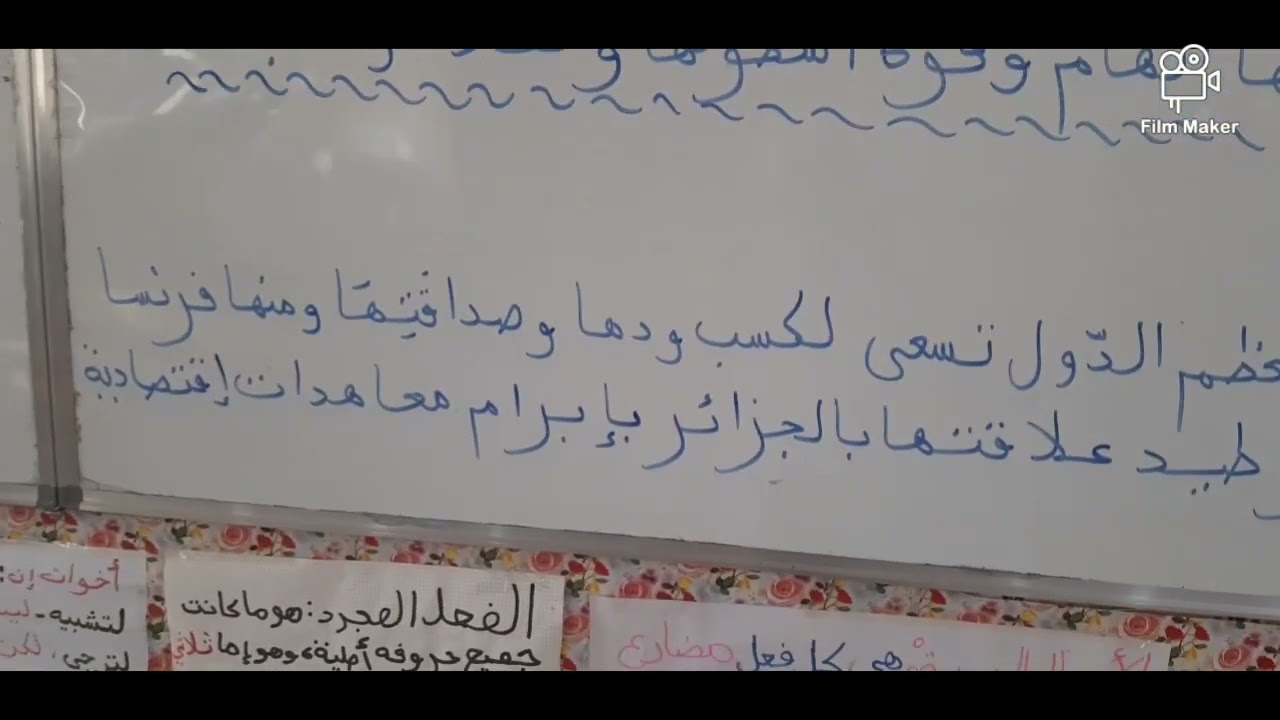 وقوة أسطولها
Film Maker
الدّول تسعى لكسب ودها وصداقتِهَا ومنها فرنسا
علاقتها بالجزائر بإبرام معاهدات إقتصادية
أخوات إن:
لتشبيه -
لترجي،
الفعل المجرد: هو ما كانت
جميع حروفه أصلية، وهو إما ثلاثي
هي كل فعل مضارع